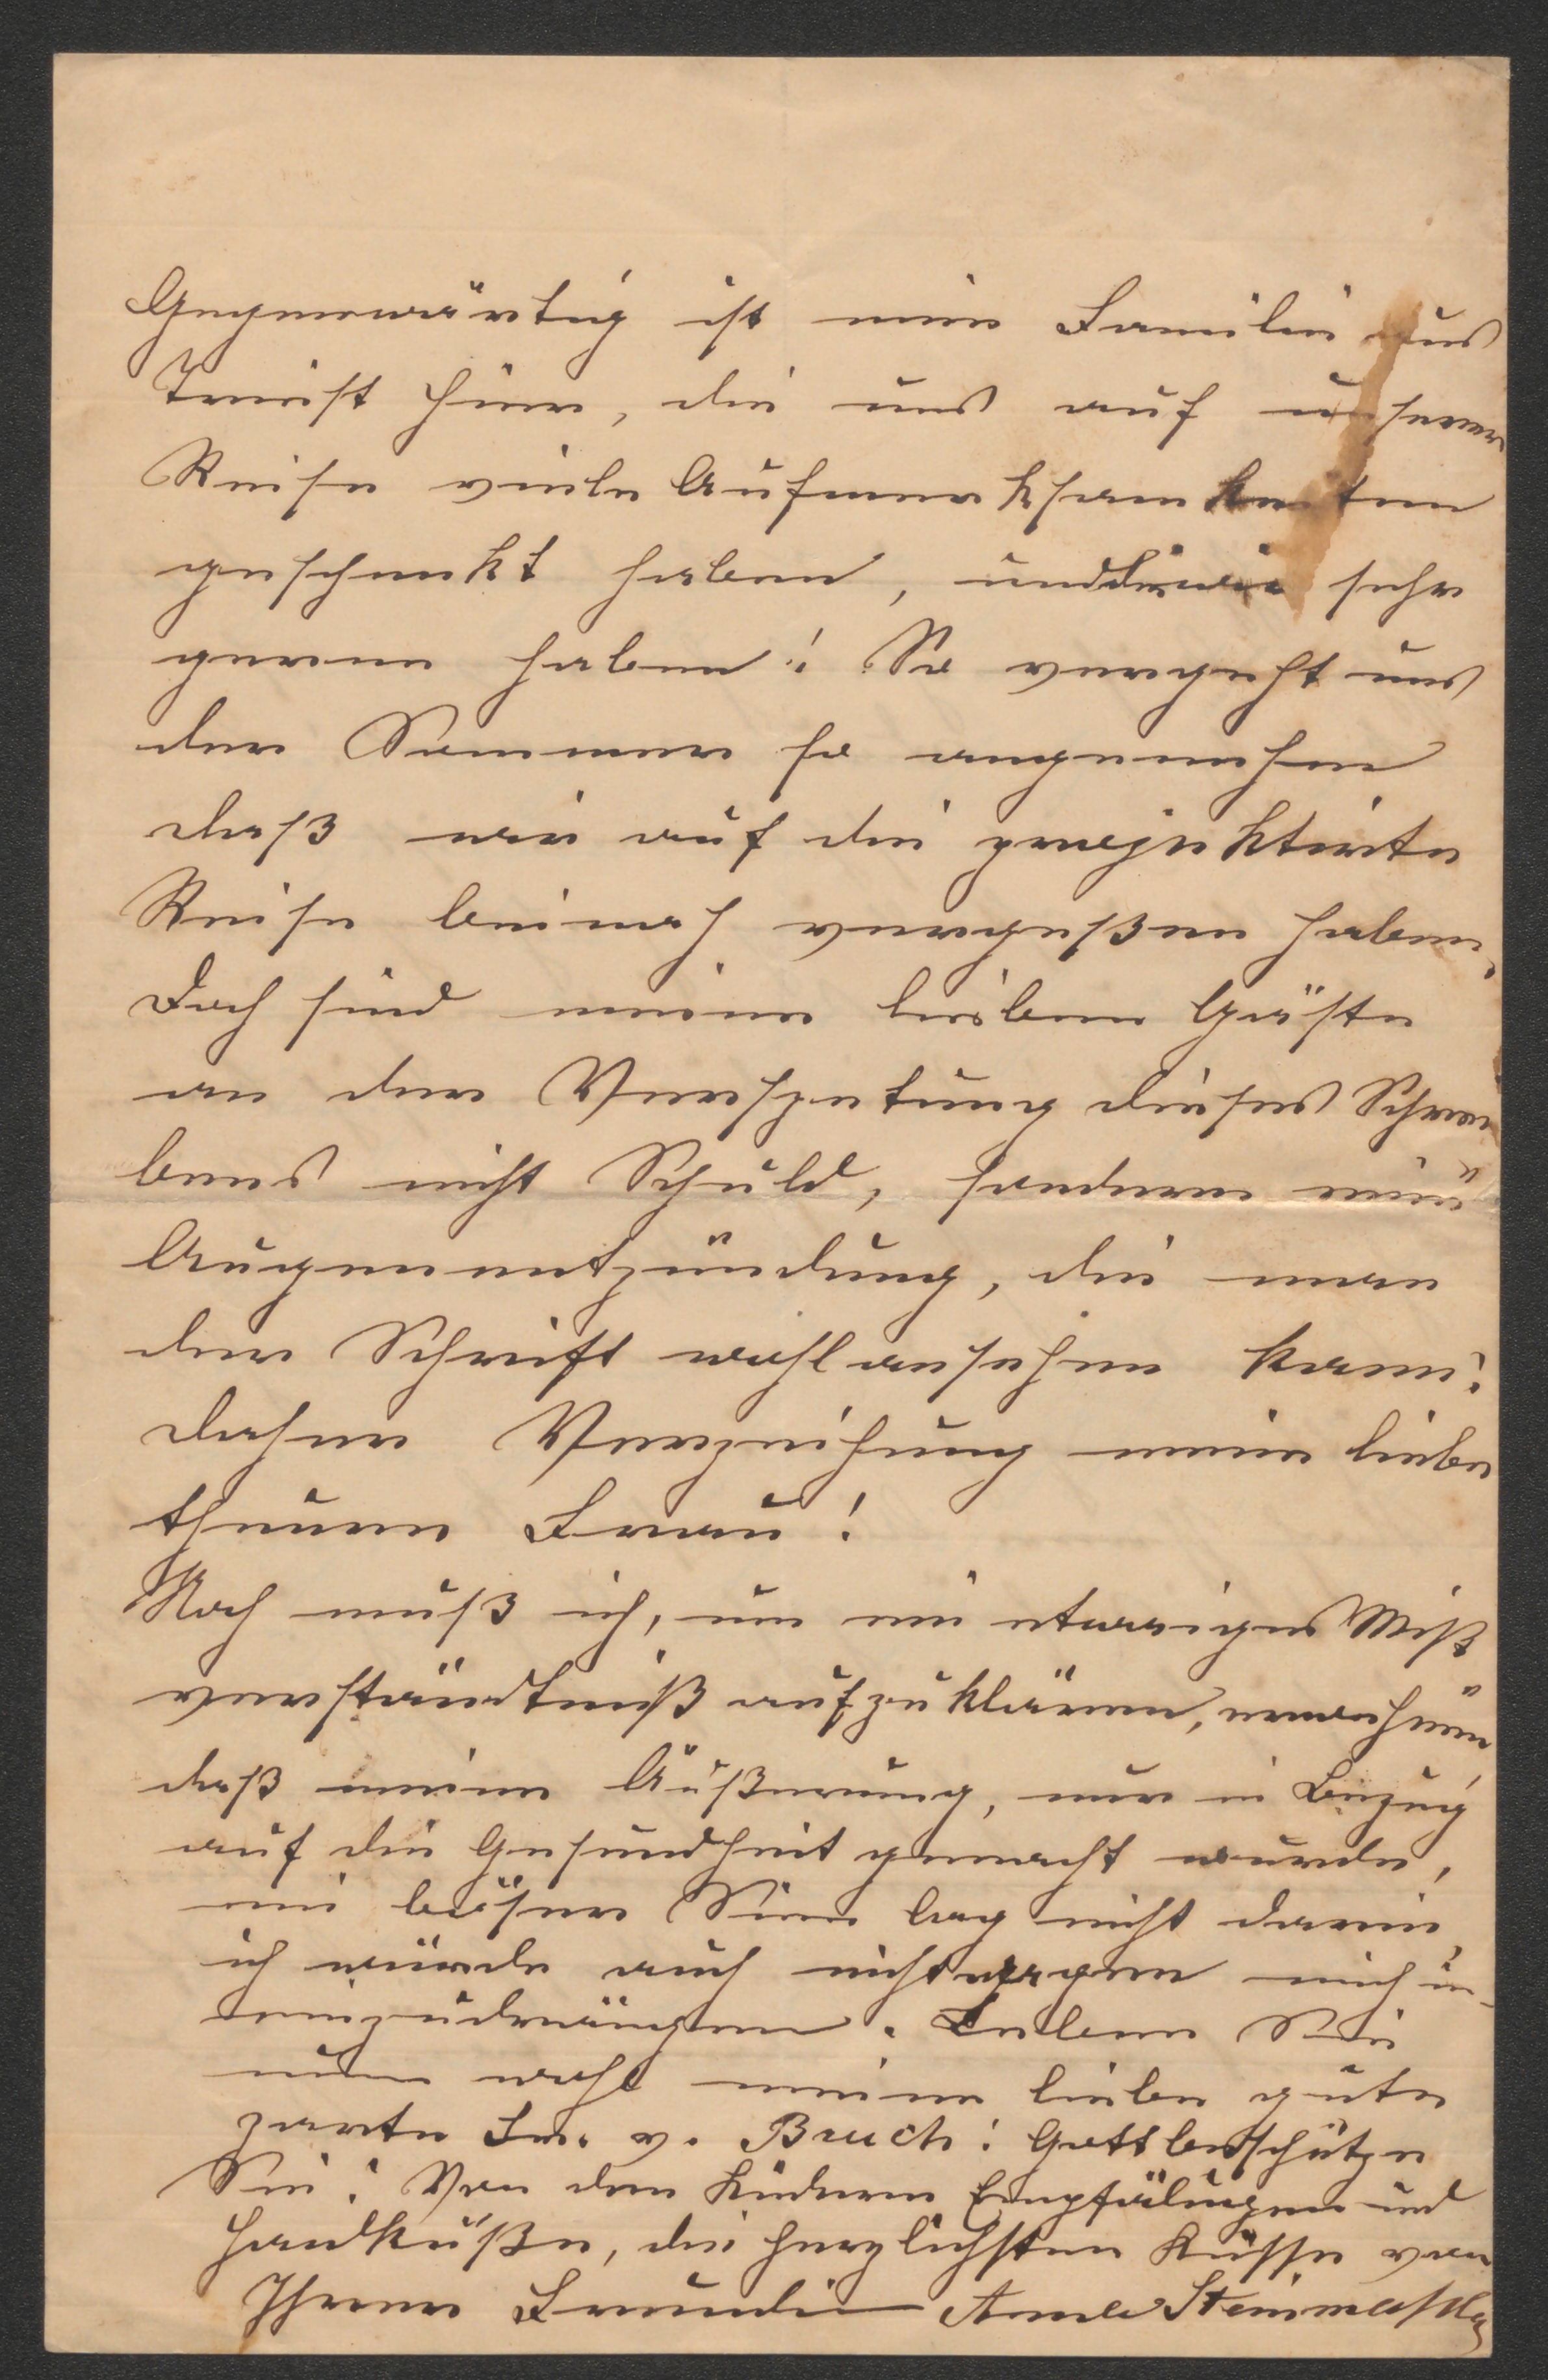 Gegenwärtig ist eine Familie aus
Triest hier, die uns auf unserer
Reise viele Aufmerksamkeiten
geschenkt haben, und die wir sehr
gerne haben! So vergeht uns
der Sommer so angenehm
daß wir auf die projektirte
Reise beinah vergeßen haben.
Doch sind meine lieben Gäste
an der Verspetung dieses Schrei
bens nicht Schuld, sondern eine
Augenentzündung, die man
der Schrift wohl ansehen kann!
daher Verzeihung meine liebe
theuere Frau!
Noch muß ich, um ein etwaiges Miß
verständtniß aufzuklären, erwähnen
daß meine Äußerung, nur in Bezug
auf die Gesundheit gemacht wurde,
ein böser Sinn lag nicht darin,
ich würde auch nicht wagen mich
einzudrängen. Leben Sie
nun wohl meine liebe gute
zarte Fr. v. Bruch! Gott beschütze
Sie! Von den Kindern Empfälugen und
Handküße, die herzlichsten Küsse von
Ihrer Freundin